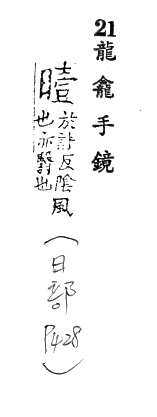 21龍龕手鏡
曀於計反陰風
也亦翳也
(日部P428)